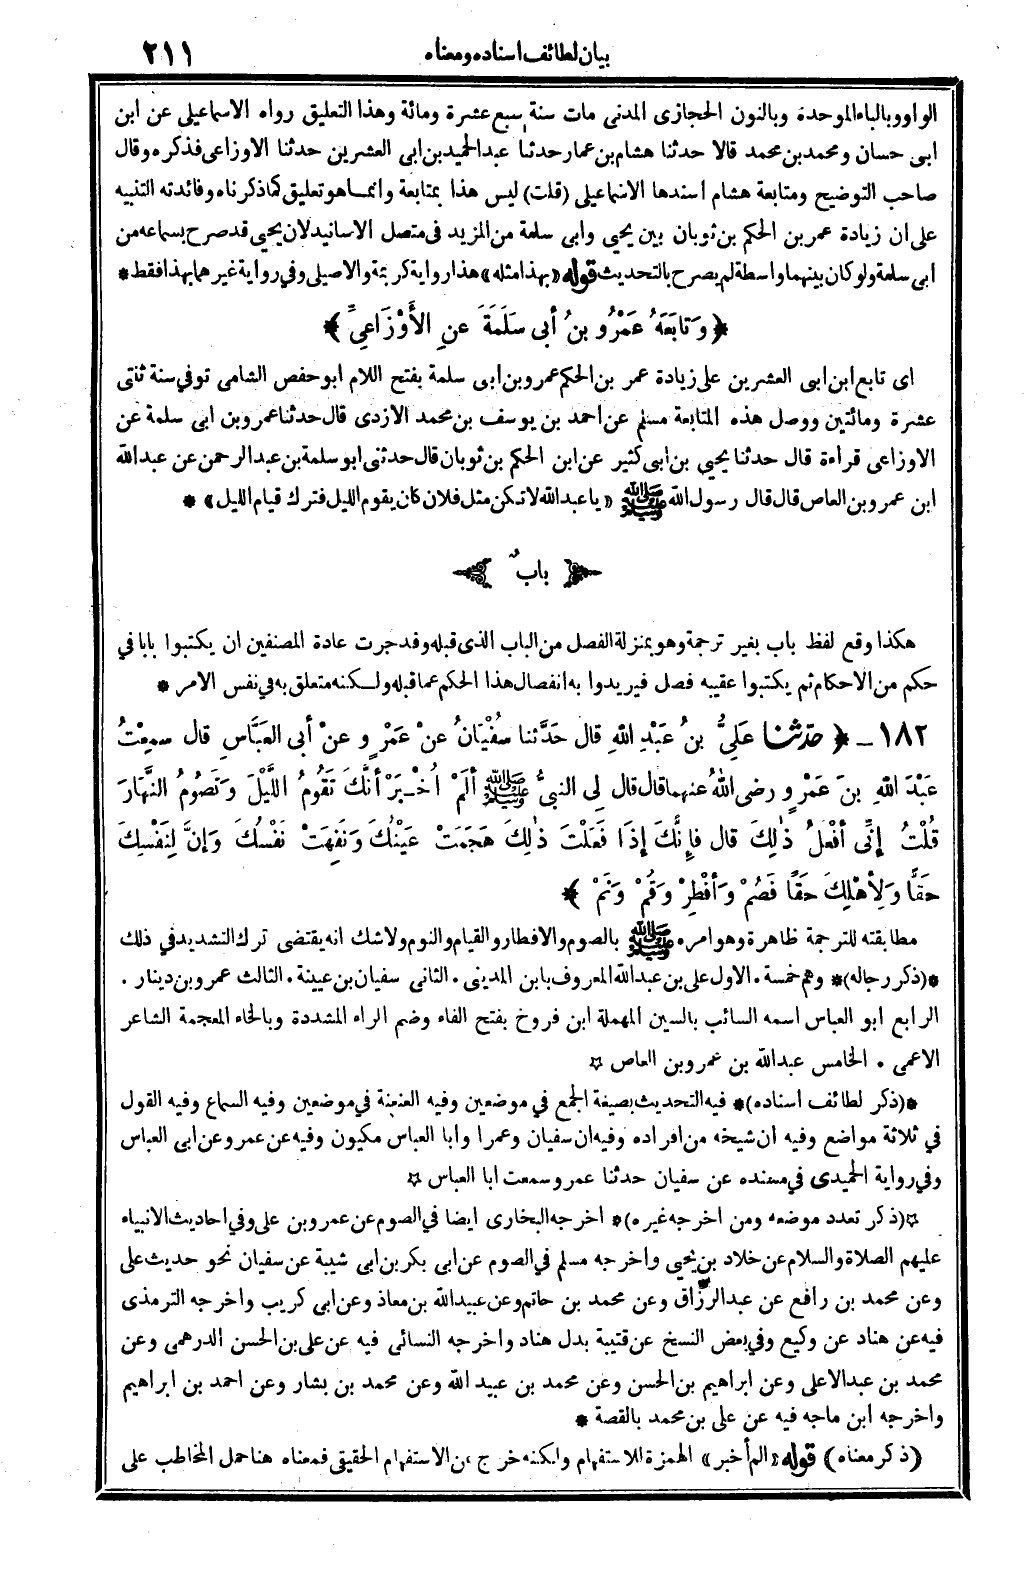 بيان لطائف اسناده ومعناه ٢١١
الواو وبالباء الموحدة وبالنون الحجازى المدنى مات سنة سبع عشرة ومائة وهذا التعليق رواه الاسماعيلى عن ابن
ابى حسان ومحمد بن محمد قالا حدثنا هشام بن عمار حدثنا عبد الحميد بن ابى العشرين حدثنا الاوزاعى فذكره وقال
صاحب التوضيح ومتابعة هشام اسندها الاسماعيلى (قلت) ليس هذا بمتابعة وانما هو تعليق كما ذكرناه وفائدته التنبيه
على ان زيادة عمر بن الحكم بن ثوبان بين يحيى وابى سلمة من المزيد فى متصل الاسانيد لان يحيى قد صرح بسماعه من
ابى سلمة ولو كان بينهما واسطة لم يصرح بالتحديث قوله «بهذا مثله» هذا رواية كريمة والاصيلى وفى رواية غيرهما بهذا فقط *
﴿ وَتَابَعَهُ عَمْرُو بنُ أبى سَلَمَةَ عنِ الأَوْزَاعِيِّ ﴾
اى تابع ابن ابى العشرين على زيادة عمر بن الحكم عمرو بن ابى سلمة بفتح اللام ابو حفص الشامى توفى سنة ثنتى
عشرة ومائتين ووصل هذه المتابعة مسلم عن احمد بن يوسف بن محمد الازدى قال حدثنا عمرو بن ابى سلمة عن
الاوزاعى قراءة قال حدثنا يحيى بن ابى كثير عن ابن الحكم بن ثوبان قال حدثنى ابو سلمة بن عبد الرحمن عن عبد الله
ابن عمرو بن العاص قال قال رسول الله ﷺ «يا عبد الله لا تكن مثل فلان كان يقوم الليل فترك قيام الليل» *
باب
هكذا وقع لفظ باب بغير ترجمة وهو بمنزلة الفصل من الباب الذى قبله وقد جرت عادة المصنفين ان يكتبوا بابا فى
حكم من الاحكام ثم يكتبوا عقيبه فصل فيريدوا به انفصال هذا الحكم عما قبله ولكنه متعلق به فى نفس الامر *
١٨٢ ـ ﴿ حَدَّثنا عَلِيُّ بنُ عَبْدِ اللهِ قال حَدَّثنا سُفْيَانُ عنْ عَمْرٍو عنْ أبى العَبَّاسِ قال سمِعْتُ
عَبْدَ اللهِ بنَ عَمْرٍو رضى اللهُ عنهما قال قال لِى النبىُّ ﷺ ألَمْ أُخْبَرْ أنَّكَ تَقُومُ اللَّيْلَ وَتَصُومُ النَّهَارَ
قُلْتُ إنِّى أفْعَلُ ذٰلِكَ قال فإِنَّكَ إذَا فَعَلْتَ ذٰلِكَ هَجَمَتْ عَيْنُكَ وَنَفِهَتْ نَفْسُكَ وَإنَّ لِنَفْسِكَ
حَقًّا وَلِأهْلِكَ حَقًّا فَصُمْ وَأفْطِرْ وَقُمْ وَنَمْ ﴾
مطابقته للترجمة ظاهرة وهو امره ﷺ بالصوم والافطار والقيام والنوم ولا شك انه يقتضى ترك التشديد فى ذلك
*(ذكر رجاله)* وهم خمسة . الاول على بن عبد الله المعروف بابن المدينى . الثانى سفيان بن عيينة . الثالث عمرو بن دينار .
الرابع ابو العباس اسمه السائب بالسين المهملة ابن فروخ بفتح الفاء وضم الراء المشددة وبالخاء المعجمة الشاعر
الاعمى . الخامس عبد الله بن عمرو بن العاص ☆
*(ذكر لطائف اسناده)* فيه التحديث بصيغة الجمع فى موضعين وفيه العنعنة فى موضعين وفيه السماع وفيه القول
فى ثلاثة مواضع وفيه ان شيخه من افراده وفيه ان سفيان وعمرا وابا العباس مكيون وفيه عن عمرو عن ابى العباس
وفى رواية الحميدى فى مسنده عن سفيان حدثنا عمرو سمعت ابا العباس ☆
☆(ذكر تعدد موضعه ومن اخرجه غيره)* اخرجه البخارى ايضا فى الصوم عن عمرو بن على وفى احاديث الانبياء
عليهم الصلاة والسلام عن خلاد بن يحيى واخرجه مسلم فى الصوم عن ابى بكر بن ابى شيبة عن سفيان نحو حديث على
وعن محمد بن رافع عن عبد الرزاق وعن محمد بن حاتم وعن عبيد الله بن معاذ وعن ابى كريب واخرجه الترمذى
فيه عن هناد عن وكيع وفى بعض النسخ عن قتيبة بدل هناد واخرجه النسائى فيه عن على بن الحسن الدرهمى وعن
محمد بن عبد الاعلى وعن ابراهيم بن الحسن وعن محمد بن عبيد الله وعن محمد بن بشار وعن احمد بن ابراهيم
واخرجه ابن ماجه فيه عن على بن محمد بالقصة *
(ذكر معناه) قوله «الم أخبر» الهمزة للاستفهام ولكنه خرج عن الاستفهام الحقيقى فمعناه هنا حمل المخاطب على